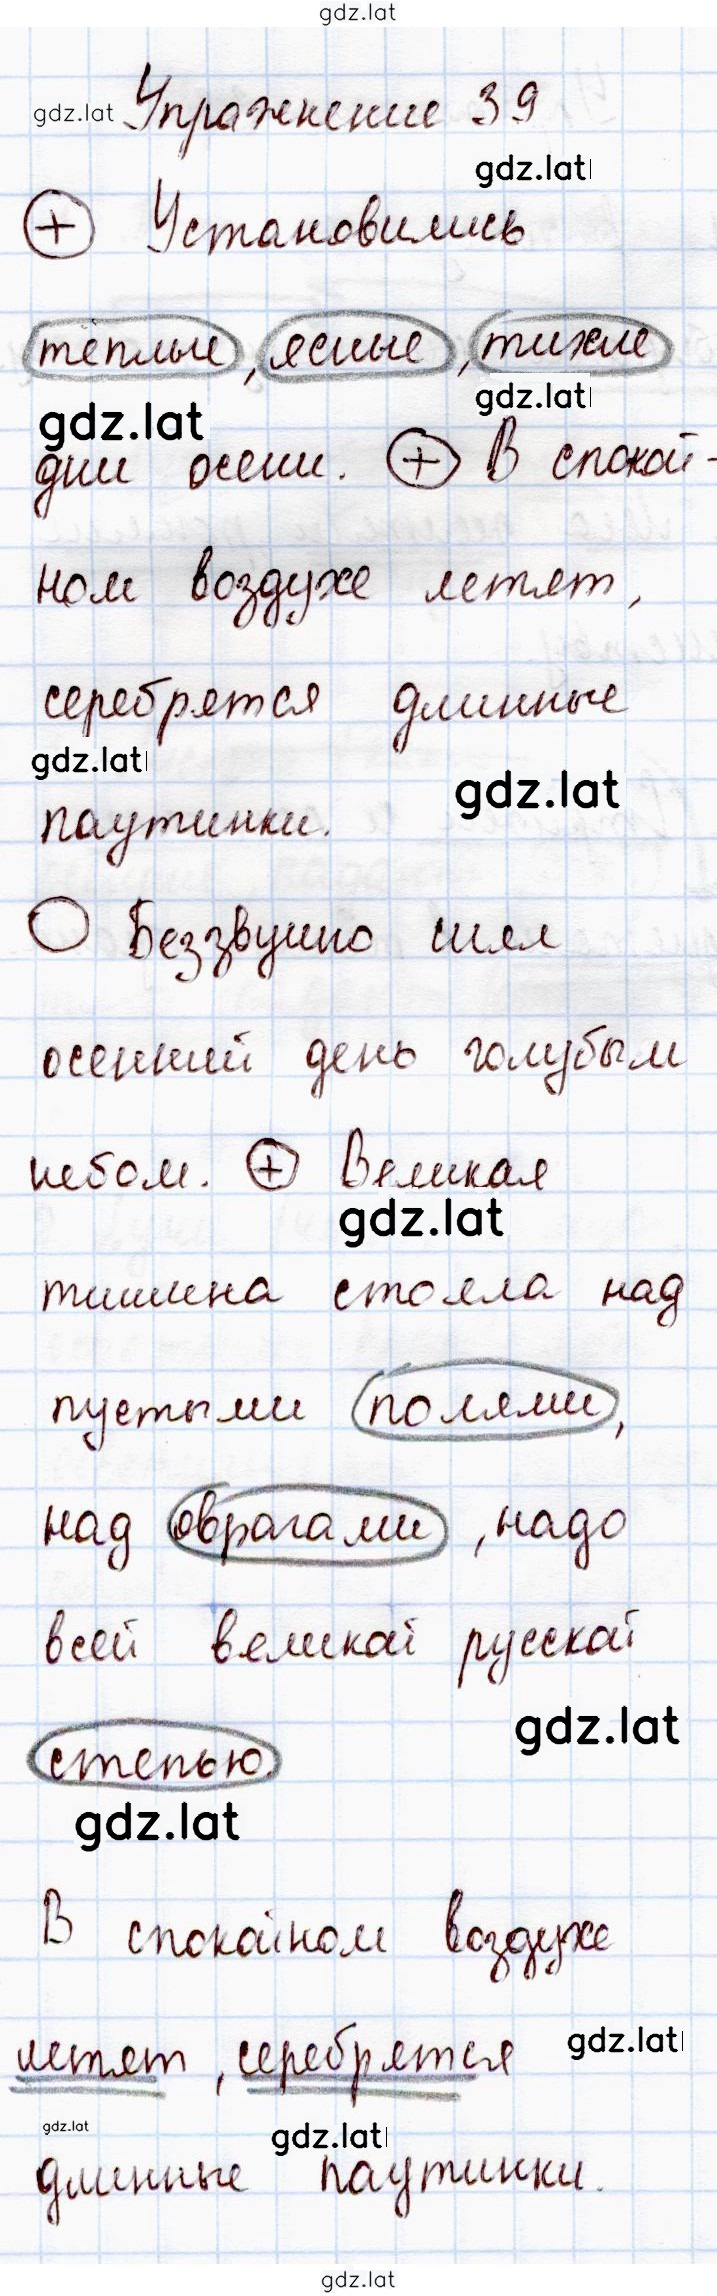 gdz.lat
gdz.lat Упражнение 39
gdz.lat
+ Установились
тёплые, ясные, тихие
gdz.lat gdz.lat
дни осени. + В спокой-
ном воздухе летят,
серебрятся длинные
gdz.lat gdz.lat
паутинки.
Беззвучно сиял
осенний день голубым
небом. + Великая
gdz.lat
тишина стояла над
пустыми полями,
над оврагами, надо
всей великой русской
gdz.lat
степью.
gdz.lat
В спокойном воздухе
gdz.lat
летят, серебрятся
gdz.lat gdz.lat
длинные паутинки.
gdz.lat